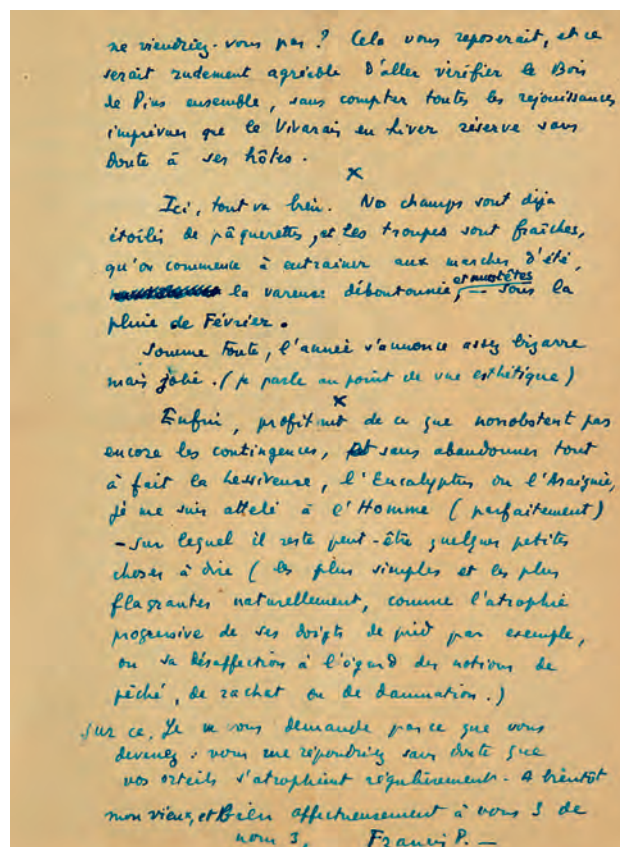 ne viendriez-vous pas ? Cela vous reposerait, et ce
serait rudement agréable d'aller vérifier le Bois
de Pins ensemble, sans compter toutes les réjouissances
imprévues que le Vivarais en hiver réserve sans
doute à ses hôtes.
x
Ici, tout va bien. Nos champs sont déjà
étoilés de pâquerettes, et les troupes sont fraîches,
qu'on commence à entraîner aux marches d'été,
la vareuse déboutonnée, et nus-têtes — sous la
pluie de Février.
Somme toute, l'année s'annonce assez bizarre
mais jolie. (je parle au point de vue esthétique)
x
Enfin, profitant de ce que nonobstent pas
encore les contingences, et sans abandonner tout
à fait la Lessiveuse, l'Eucalyptus ou l'Araignée,
je me suis attelé à l'Homme (parfaitement)
- sur lequel il reste peut-être quelques petites
choses à dire (les plus simples et les plus
flagrantes naturellement, comme l'atrophie
progressive de ses doigts de pied par exemple,
ou sa désaffection à l'égard des notions de
péché, de rachat ou de damnation.)
Sur ce, Je ne vous demande pas ce que vous
devenez : vous me répondriez sans doute que
vos orteils s'atrophient régulièrement. A bientôt
mon vieux, et Bien affectueusement à vous 3 de
nous 3, Francis P. —